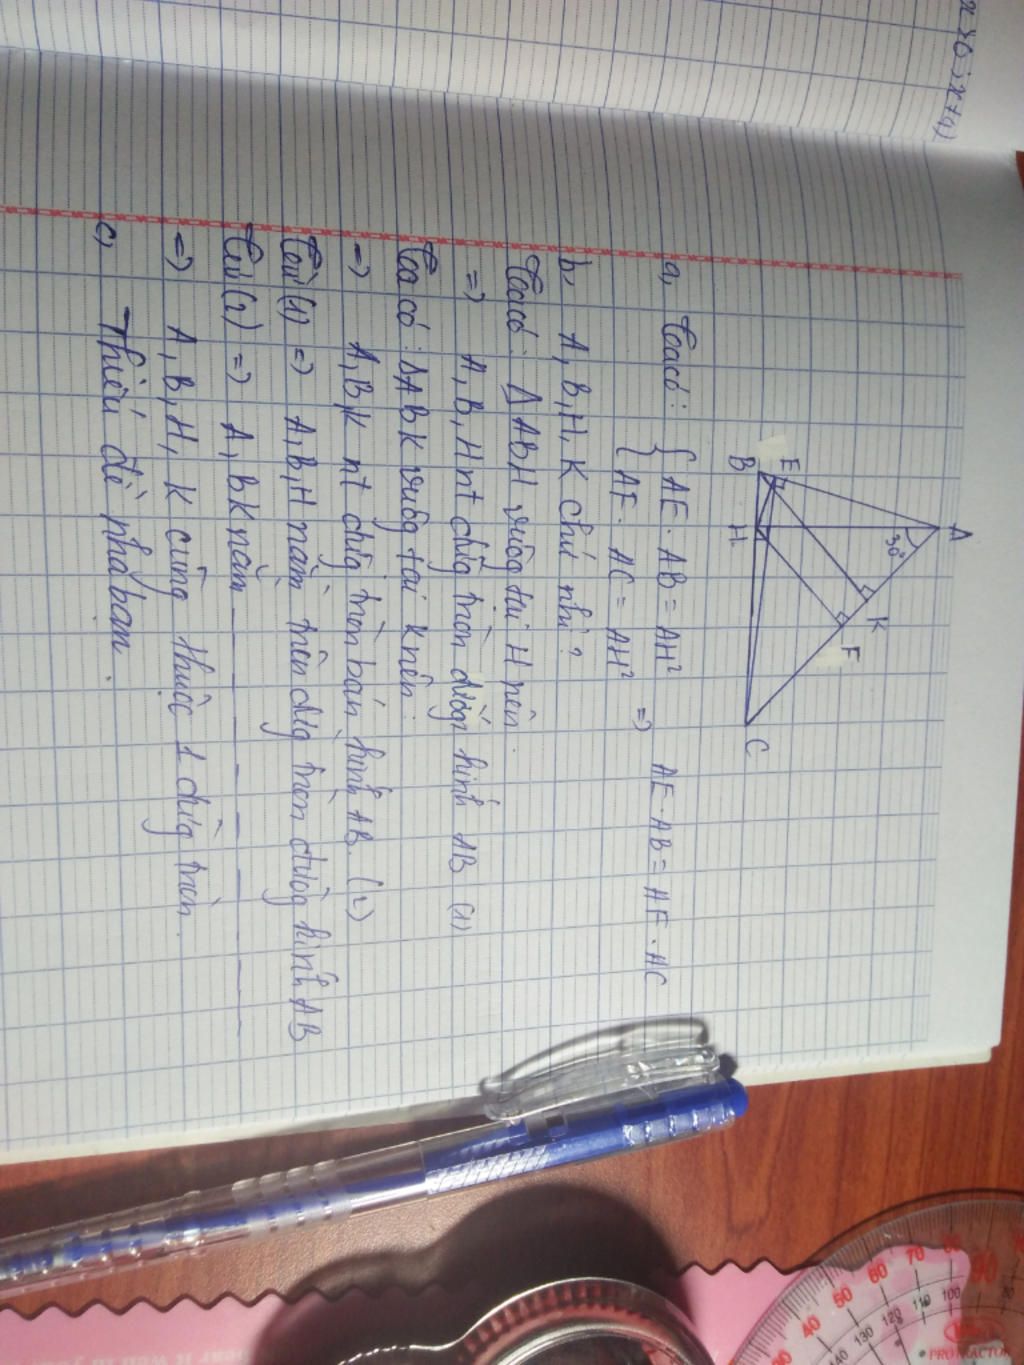 x≥0; x≠4)
A
30°
K
F
E
B
H
C
a, Ta có: { AE. AB = AH²
{ AF. AC = AH² => AE. AB = AF. AC
b, A, B, H, K chú nhỉ?
Ta có: Δ ABH vuông tại H nên
=> A, B, H nt đường tròn đường kính AB (1)
Ta có: Δ ABK vuông tại K nên
=> A, B, K nt đường tròn bán kính AB. (2)
Từ (1) => A, B, H nằm trên đường tròn đường kính AB
Từ (2) => A, B K nằm
=> A, B, H, K cùng thuộc 1 đường tròn.
c, Thiếu đề nha bạn.
PROTRACTOR
40
50
60
70
80
90
80
100
110
120
130
140